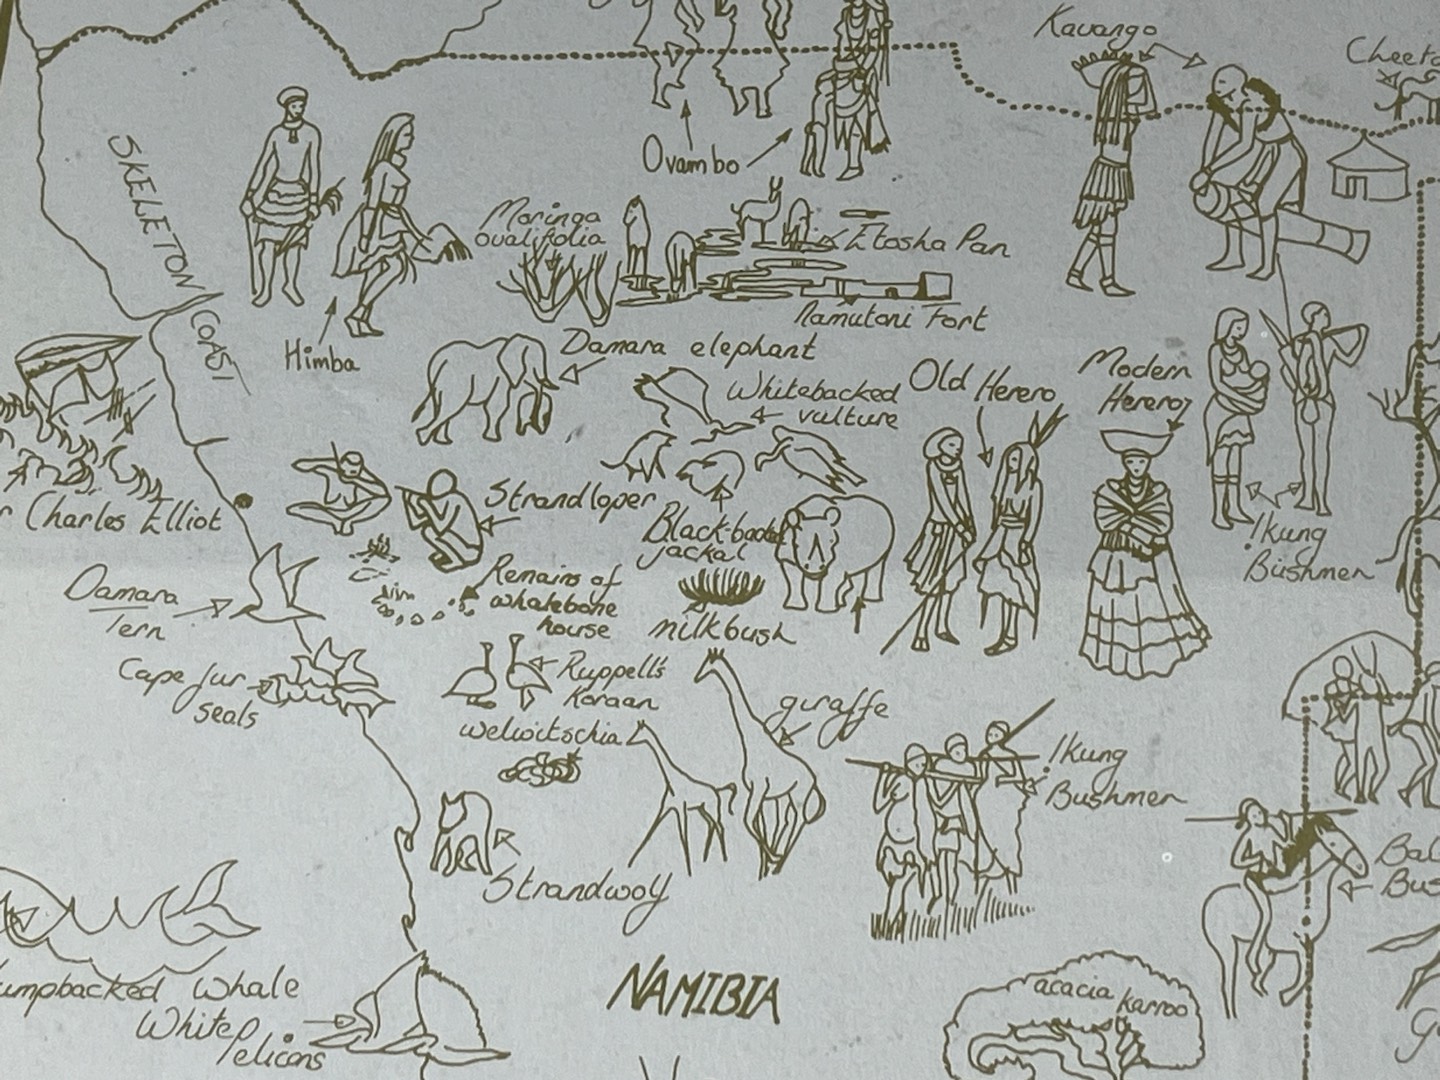 Kavango
Ovambo
SKELETON
COAST
Moringa
ovalifolia
Etosha Pan
Namutoni Fort
Himba
Damara elephant
Whitebacked
vulture
Old Herero
Modern
Herero
Charles Elliot
Strandloper
Black-backed
jackal
!Kung
Bushmen
Damara
Tern
Remains of
whalebone
house
milkbush
Cape fur
seals
Ruppell's
Koraan
welwitschia
giraffe
!Kung
Bushmen
Strandwolf
Whale
White
Pelicans
NAMIBIA
acacia karroo